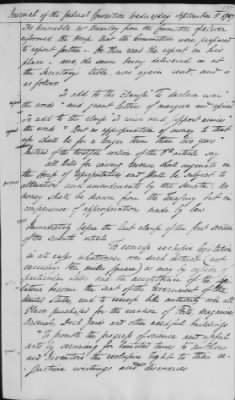 Journal of the federal Convention Wednesday September 5 1787
The honorable Mr Brearley from the Committee
informed the House that the Committee were prepared
to report further - He then read the report in his
place - and the same being delivered in at
the Secretary's table was again read, and is
as follows
To add to the clause "to declare war"
the words "and grant letters of marque and reprisal"
To add to the clause "to raise and support armies"
the words "But no appropriation of money to that
use shall be for a longer term than two years"
All Bills for raising revenue shall originate in
the House of representatives and shall be subject to
alterations and amendments by the Senate. No
money shall be drawn from the Treasury but in
consequence of appropriations made by law.
Immediately before the last clause of the first section
of the seventh article
To exercise exclusive legislation
in all cases whatsoever over such district (not
exceeding ten miles square) as may by cession of
particular states and the acceptance of the
become the seat of the Government of the
United States, and to exercise like authority over all
Places purchased for the erection of Forts, Magazines
Arsenals, Dock Yards and other needful buildings
To promote the progress of science and useful
arts by securing for limited times to authors
and Inventors the exclusive right to their
respective writings and discoveries